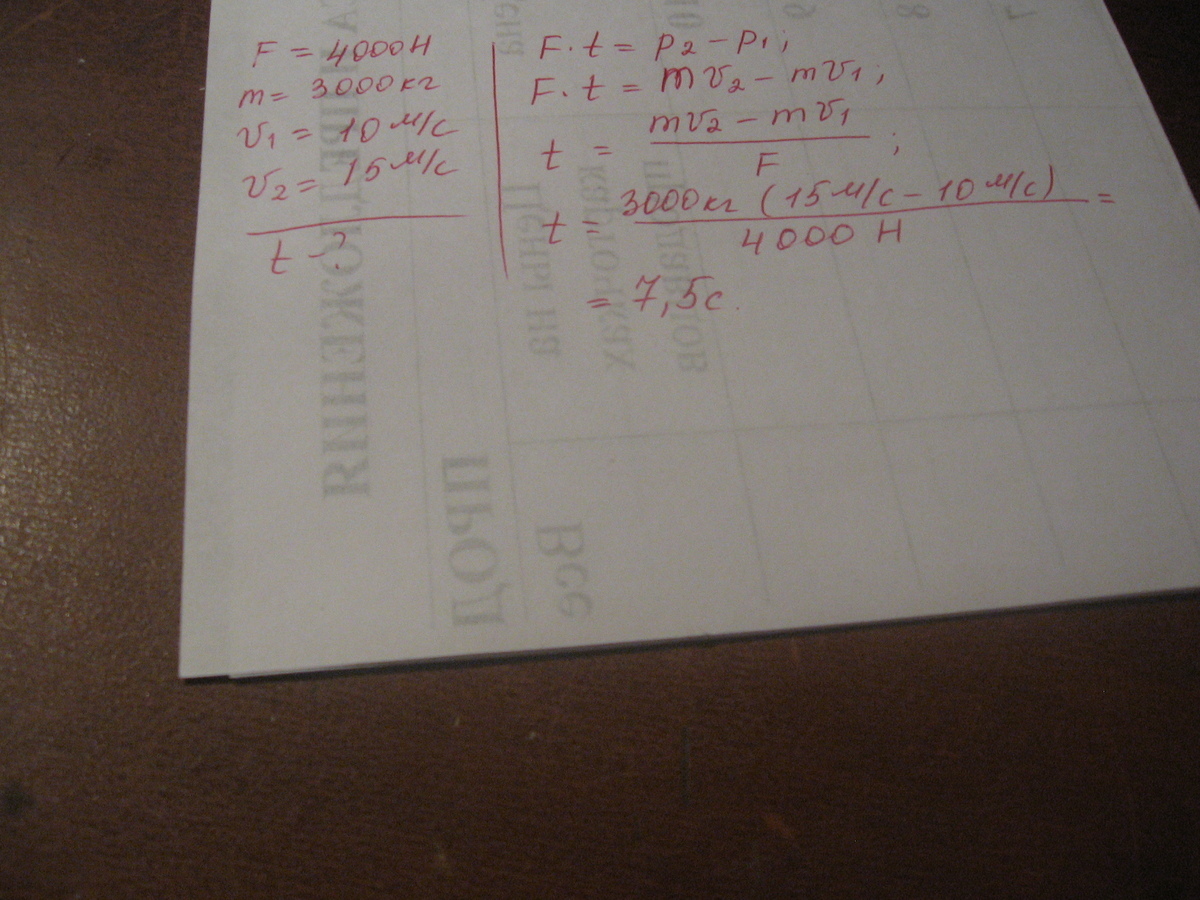 F = 4000Н
m = 3000кг
v₁ = 10 м/с
v₂ = 15 м/с
t - ?
F · t = p₂ – p₁;
F · t = mv₂ – mv₁;
t = (mv₂ – mv₁) / F;
t = 3000кг (15м/с – 10м/с) / 4000 Н =
= 7,5с.
ПРЕДЛОЖЕНИЯ
Цена
Цены на
карточках
ПРОД
Все
10
9
8